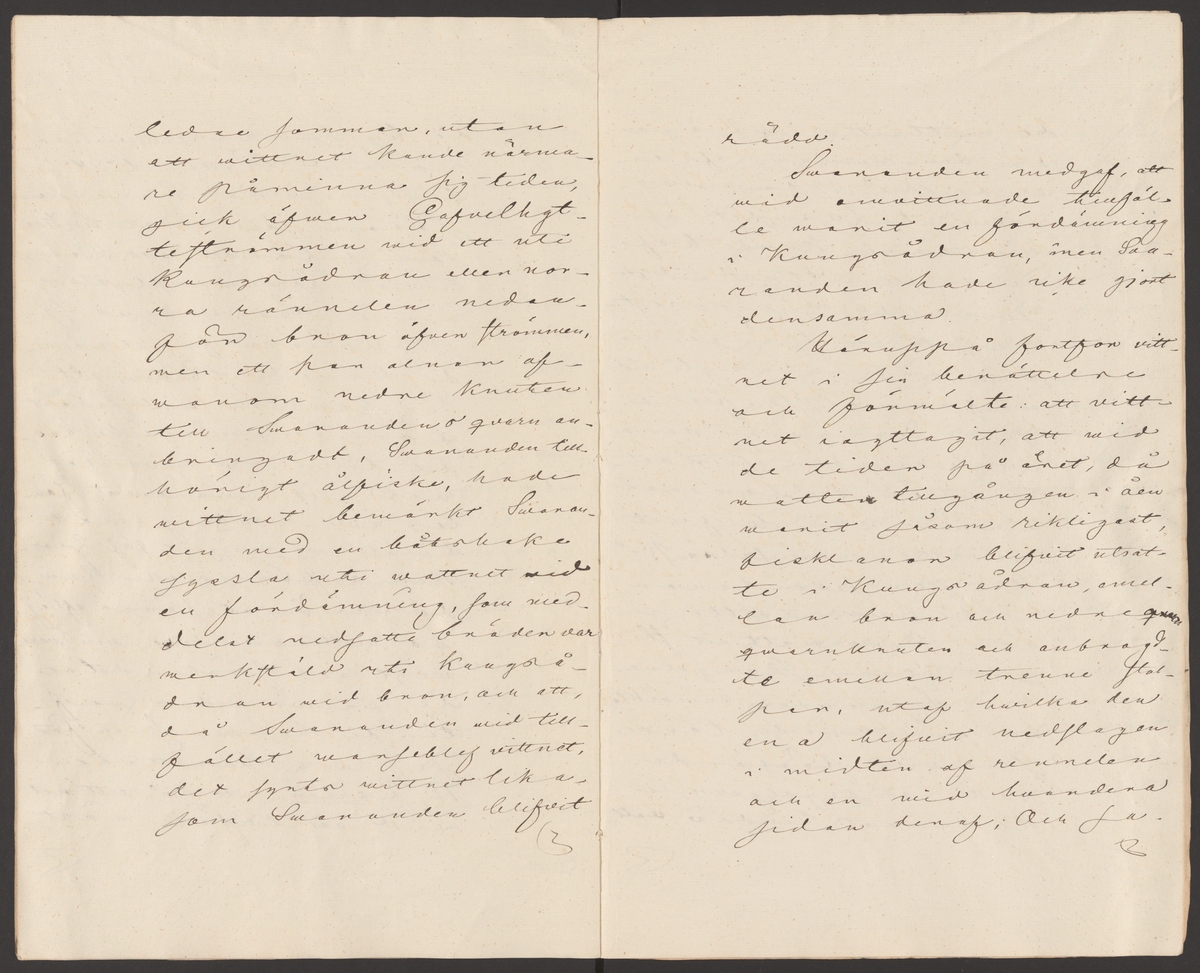 ledne sommar, utan
att wittnet kunde närma-
re påminna sig tiden,
gick äfwen
wid ett uti
Kungsådran eller nor-
ra rännelen nedan-
för bron öfver strömmen,
men ett par alnar of-
wanom nedre Knuten
till Swarandens qvarn an-
bringadt, Swaranden till-
hörigt ålfiske, hade
wittnet bemärkt Swaran-
den med en båtshake
syssla uti wattnet wid
en fördämning, som med-
delst nedsatte bräder var
werkstäld uti Kungså-
dran wid bron, och att,
då Swaranden wid till-
fället warseblef vittnet,
det synts wittnet lika-
som Swaranden blifvit
rädd.
Swaranden medgaf, att
wid omvittnade tillfäl-
le warit en fördämning
i Kungsådran, men Swa-
randen hade icke gjort
densamma.
Häruppå fortfor vitt-
net i sin berättelse
och förmälte: att vitt-
net iagttagit, att wid
de tider på året, då
watten tillgången i åen
warit såsom rikligast,
fisklanor blifvit utsat-
te i Kungsådran, emel-
lan bron och nedre
qvarnknuten och anbragd-
te emellan trenne stol-
par, utaf hwilka den
ena blifvit nedslagen
i midten af rennelen
och en wid hvardera
sidan deraf; Och sa-